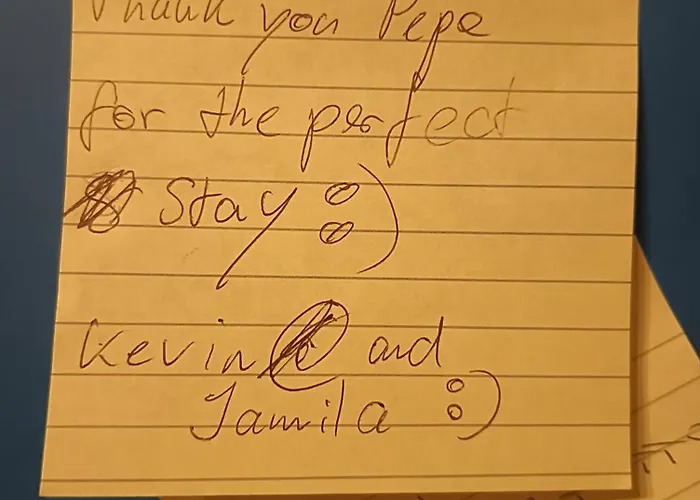 Thank you Pepe
for the perfect
Stay :)
Kevin and
Jamila :)